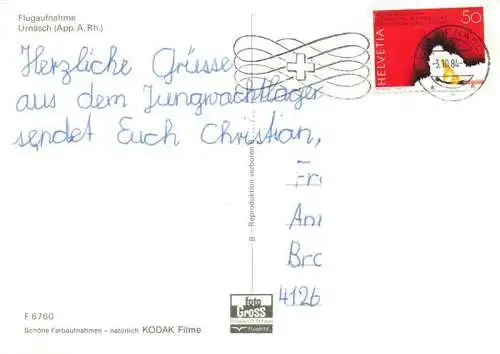 Flugaufnahme
Urnäsch (App. A. Rh.)
HELVETIA
50
-3.10.84
Herzliche Grüsse
aus dem Jungwachtlager
sendet Euch Christian,
Fr
An
Bro
4126
B – Reproduktion verboten
foto
Gross
F 6760
Schöne Farbaufnahmen – natürlich KODAK Filme